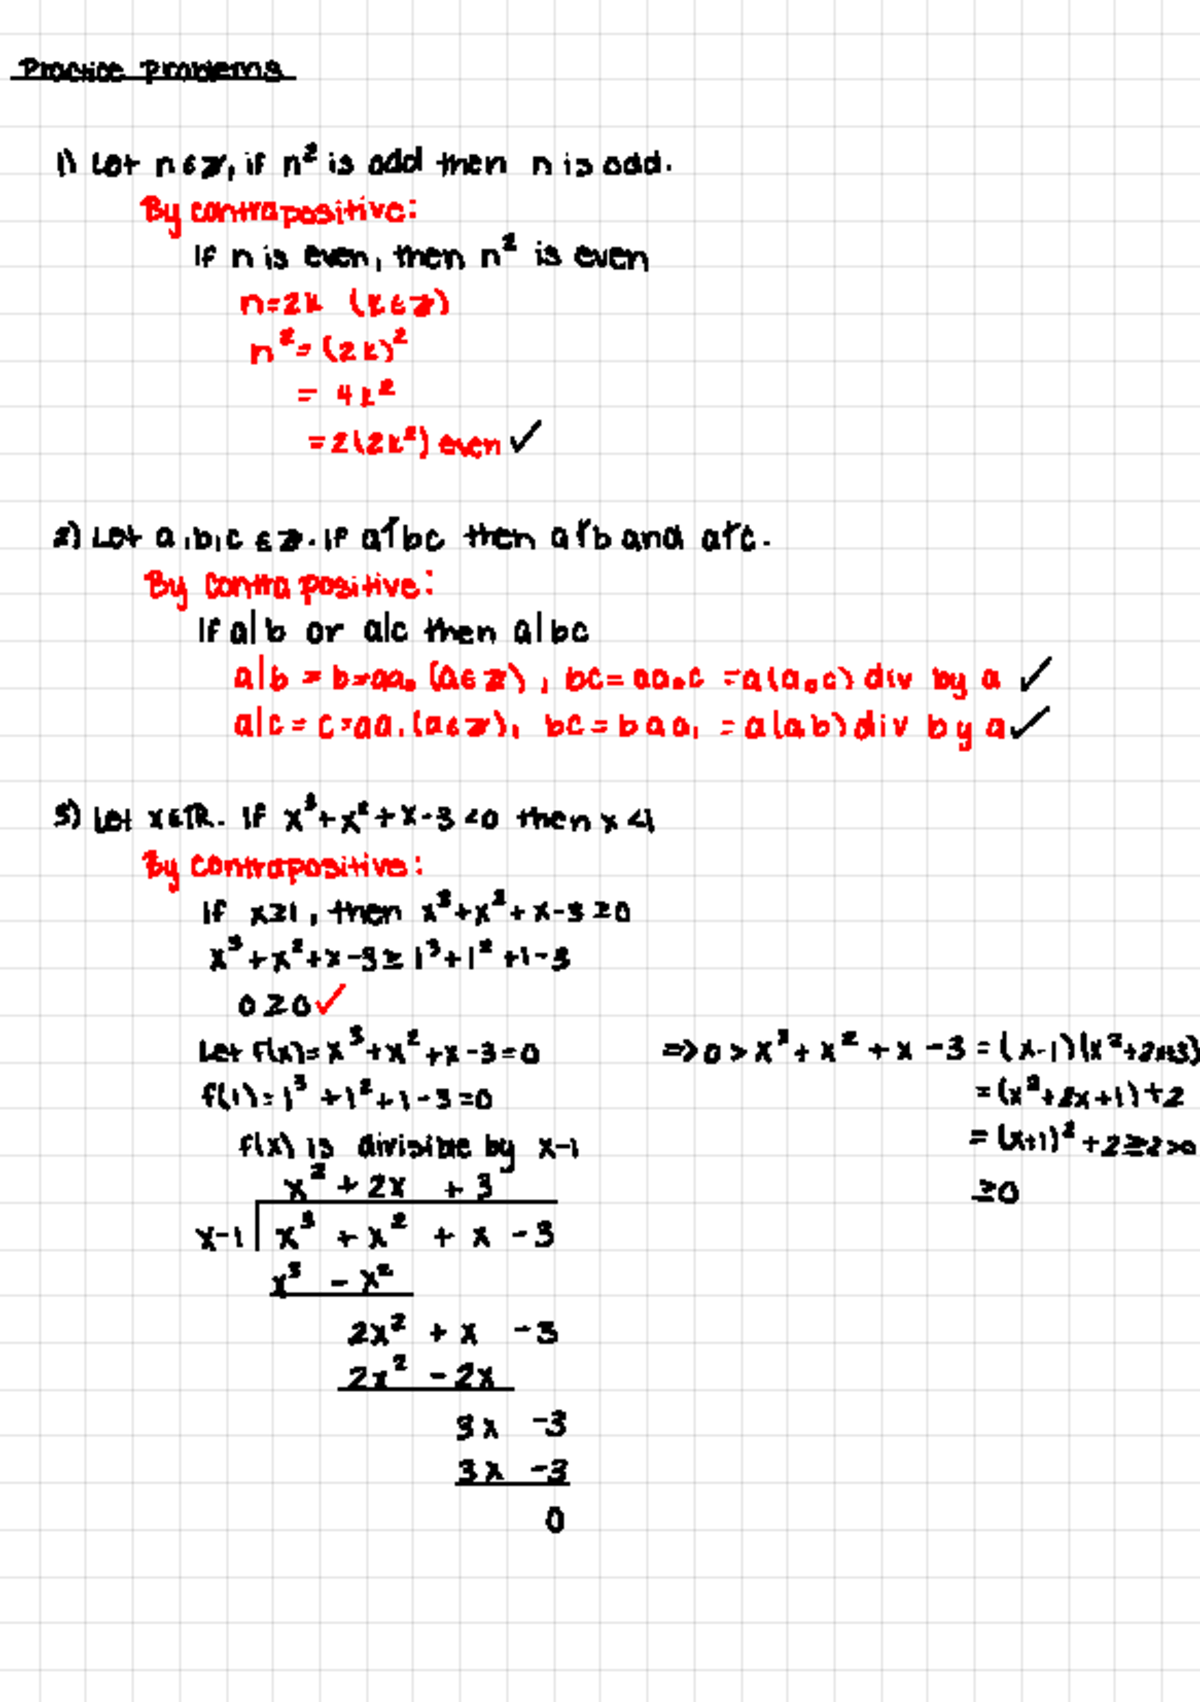 Practice Problems
1) Let n ∈ ℤ, if n² is odd then n is odd.
By contrapositive:
If n is even, then n² is even
n=2k (k ∈ ℤ)
n² = (2k)²
= 4k²
= 2(2k²) even ✓
2) Let a,b,c ∈ ℤ. If a∤bc then a∤b and a∤c.
By contrapositive:
If a|b or a|c then a|bc
a|b = b=aa₀ (a ∈ ℤ), bc = aa₀c = a(a₀c) div by a ✓
a|c = c=aa₁ (a ∈ ℤ), bc = baa₁ = a(ab) div by a ✓
3) Let x ∈ ℝ. If x³+x²+x-3<0 then x<1
By contrapositive:
If x≥1, then x³+x²+x-3≥0
x³+x²+x-3≥1³+1²+1-3
0≥0 ✓
Let f(x)=x³+x²+x-3=0
f(1)=1³+1²+1-3=0
f(x) is divisible by x-1
x² + 2x + 3
x-1 x³ + x² + x - 3
x³ - x²
2x² + x - 3
2x² - 2x
3x - 3
3x - 3
0
=> 0 > x³ + x² + x - 3 = (x-1)(x²+2x+3)
= (x²+2x+1)+2
= (x+1)²+2≥2>0
≥0